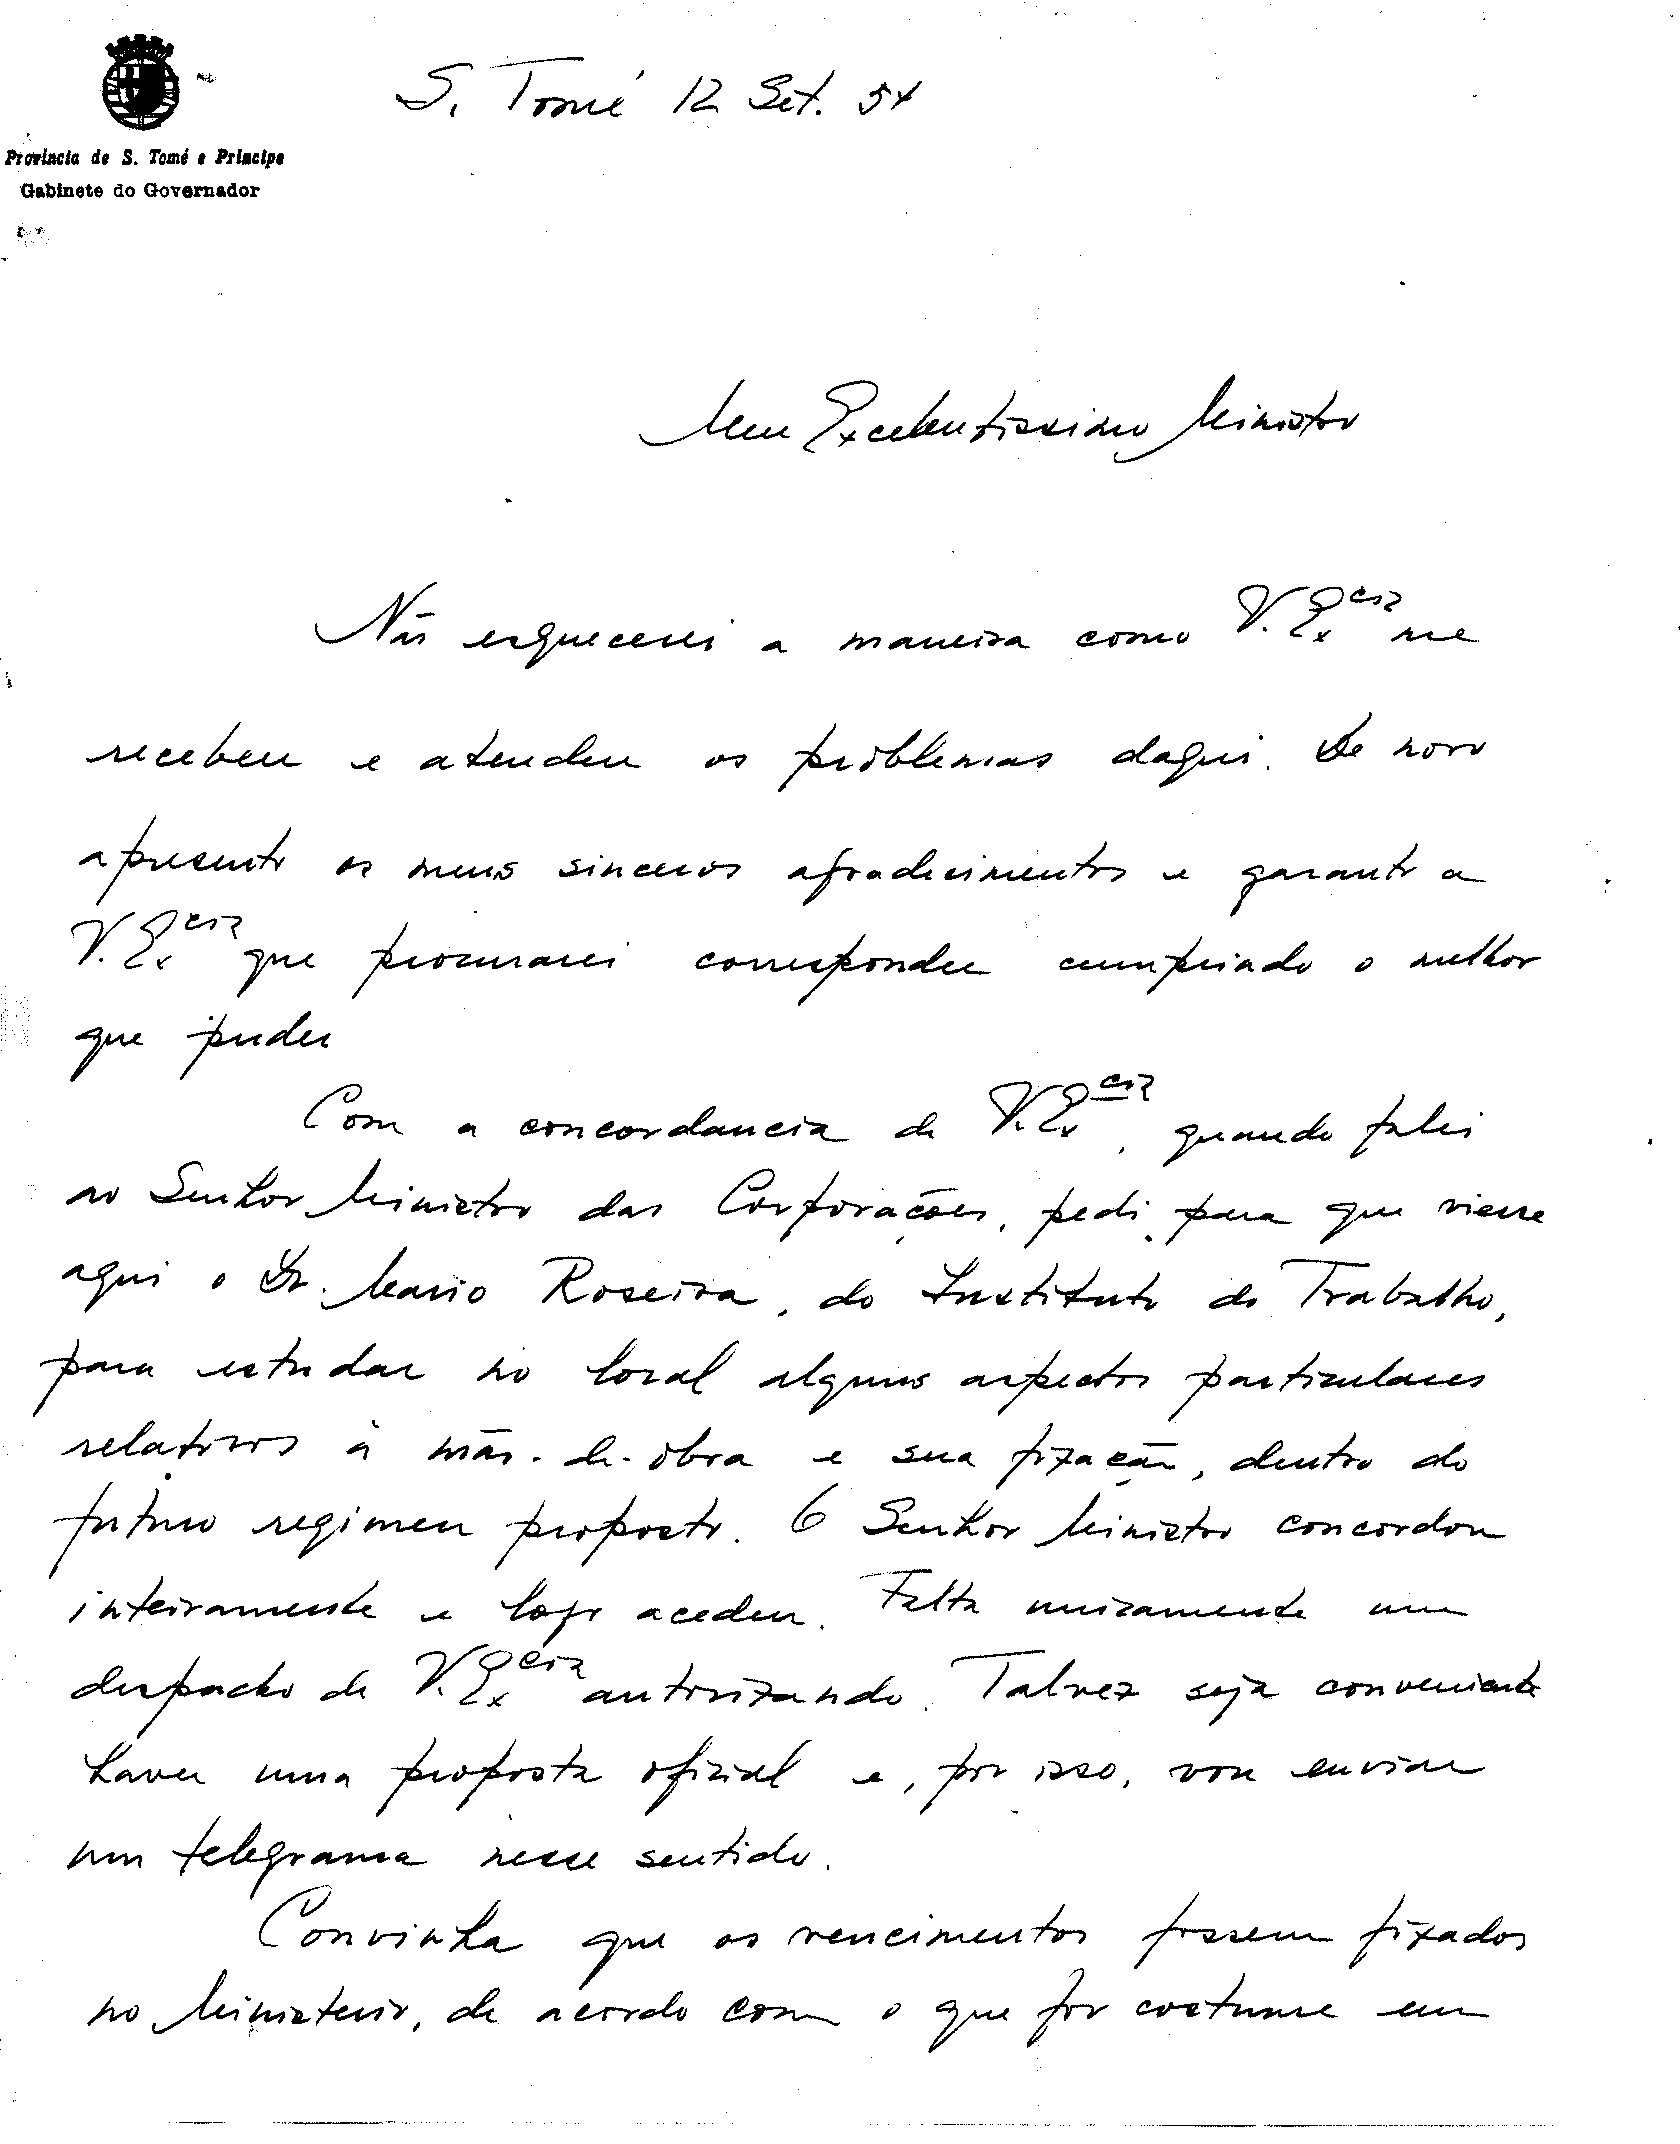 Província de S. Tomé e Príncipe
Gabinete do Governador
S. Tomé 12 Set. 54
Meu Excelentissimo Ministro
Não esquecerei a maneira como V. Ex.cia me
recebeu e atendeu os problemas daqui. De novo
apresento os meus sinceros agradecimentos e garanto a
V. Ex.cia que procurarei corresponder cumprindo o melhor
que puder
Com a concordancia de V. Ex.cia, quando falei
ao Senhor Ministro das Corporações, pedi para que viesse
aqui o Dr. Mario Roseira, do Instituto do Trabalho,
para estudar no local alguns aspectos particulares
relativos à mão-de-obra e sua fixação, dentro do
futuro regimen proposto. O Senhor Ministro concordou
inteiramente e logo acedeu. Falta unicamente um
despacho de V. Ex.cia autorizando. Talvez seja conveniente
haver uma proposta oficial e, por isso, vou enviar
um telegrama nesse sentido.
Convinha que os vencimentos fossem fixados
no Ministerio, de acordo com o que for costume em